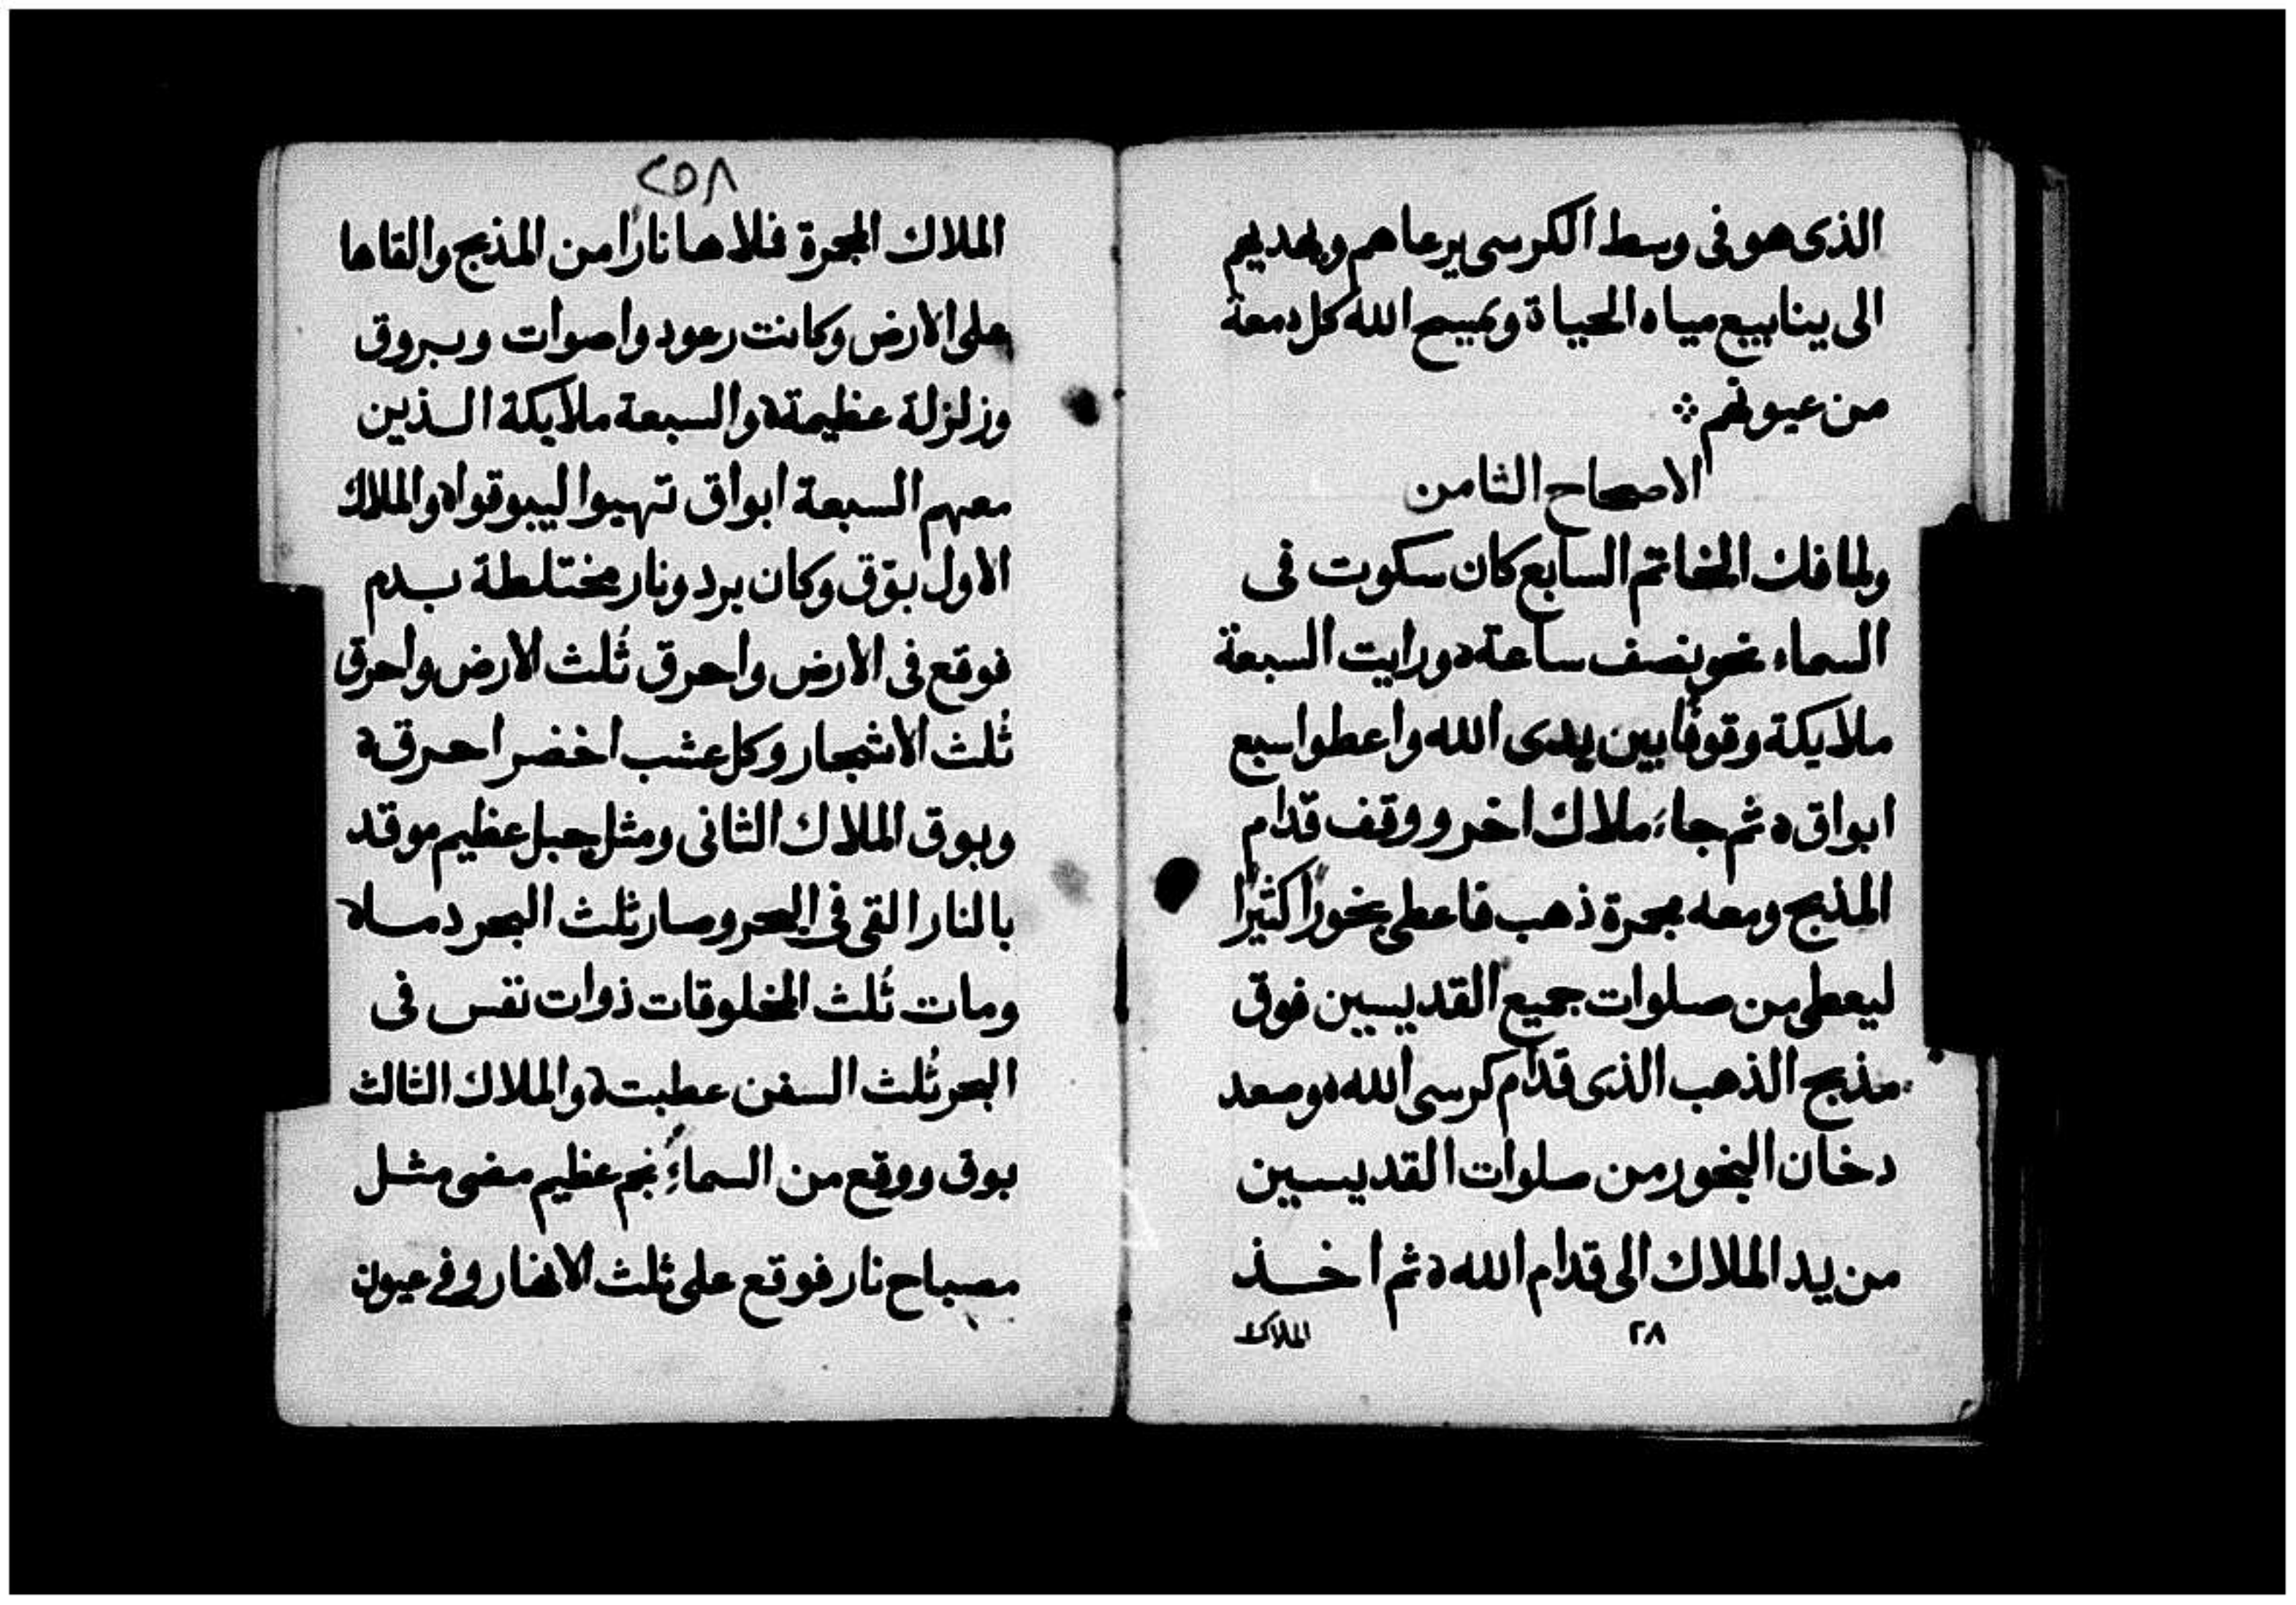 الذى هو فى وسط الكرسى يرعاهم ويهديهم
الى ينابيع مياه الحياة ويمسح الله كل دمعة
من عيونهم
الاصحاح الثامن
ولما فك الخاتم السابع كان سكوت فى
السماء نحو نصف ساعة ورايت السبعة
ملايكة وقوفا بين يدى الله واعطوا سبع
ابواق ثم جاء ملاك اخر ووقف قدام
المذبح ومعه مجمرة ذهب فاعطى بخورا كثيرا
ليعطى من صلوات جميع القديسين فوق
مذبح الذهب الذى قدام كرسى الله وصعد
دخان البخور من صلوات القديسين
من يد الملاك الى قدام الله ثم اخذ
٢٨ الملاك
٢٥٨
الملاك المجمرة فملاها نارا من المذبح والقاها
على الارض وكانت رعود واصوات وبروق
وزلزلة عظيمة والسبعة ملايكة الذين
معهم السبعة ابواق تهيوا ليبوقوا والملاك
الاول بوّق وكان برد ونار مختلطة بدم
فوقع فى الارض واحرق ثُلث الارض واحرق
ثُلث الاشجار وكل عشب اخضر احرق
وبوق الملاك الثانى ومثل جبل عظيم موقد
بالنار القى فى البحر وصار ثلث البحر دما
ومات ثُلث المخلوقات ذوات نفس فى
البحر ثُلث السفن عطبت والملاك الثالث
بوق ووقع من السماء نجم عظيم مضى مثل
مصباح نار فوقع على ثلث الانهار وفى عيون